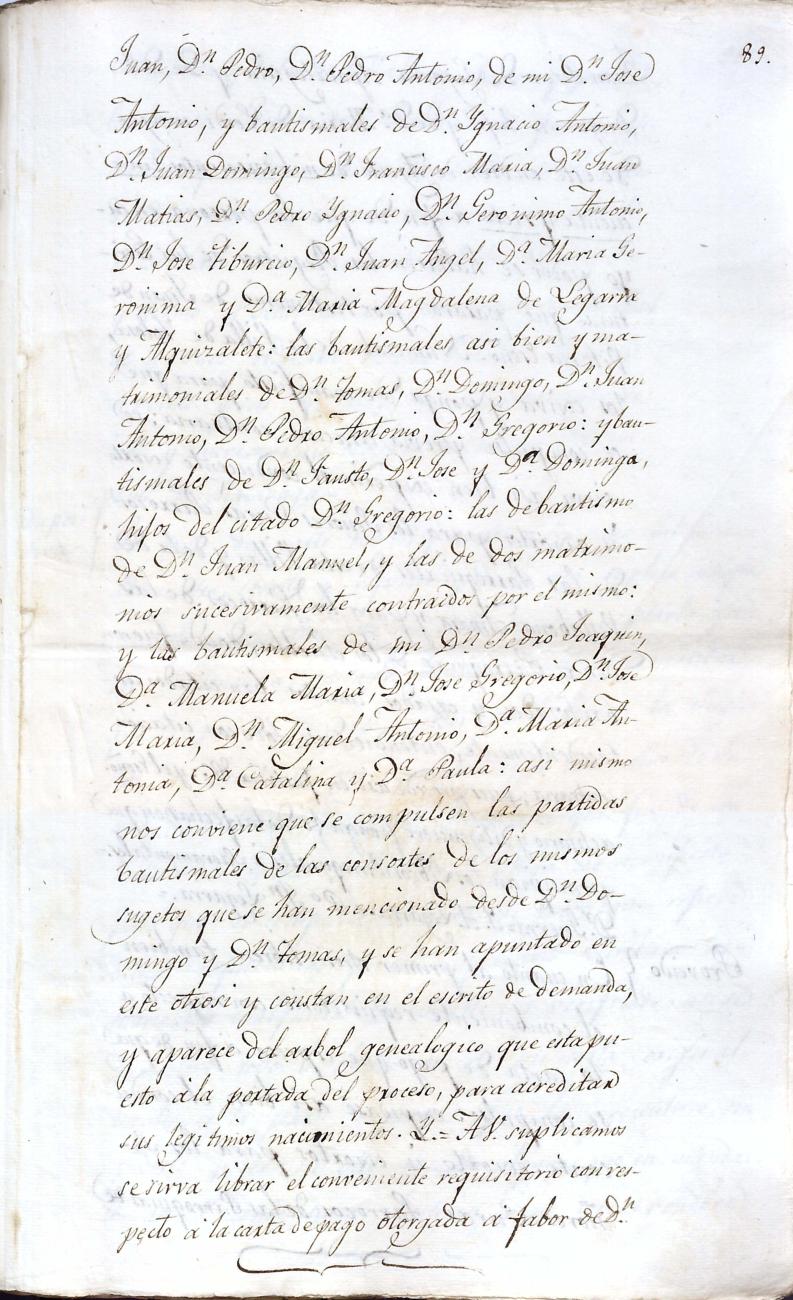 89.
Juan, Dn. Pedro, Dn. Pedro Antonio, de mi Dn. Jose
Antonio, y bautismales de Dn. Ygnacio Antonio,
Dn. Juan Domingo, Dn. Francisco Maria, Dn. Juan
Matias, Dn. Pedro Ygnacio, Dn. Geronimo Antonio,
Dn. Jose Tiburcio, Dn. Juan Angel, Da. Maria Ge-
ronima y Da. Maria Magdalena de Legarra
y Alquizalete: las bautismales asi bien y ma-
trimoniales de Dn. Tomas, Dn. Domingo, Dn. Juan
Antonio, Dn. Pedro Antonio, Dn. Gregorio: y bau-
tismales de Dn. Fausto, Dn. Jose y Da. Dominga,
hijos del citado Dn. Gregorio: las de bautismo
de Dn. Juan Manuel, y las de dos matrimo-
nios sucesivamente contraidos por el mismo:
y las bautismales de mi Dn. Pedro Joaquin,
Da. Manuela Maria, Dn. Jose Gregorio, Dn. Jose
Maria, Dn. Miguel Antonio, Da. Maria An-
tonia, Da. Catalina y Da. Paula: asi mismo
nos conviene que se compulsen las partidas
bautismales de las consortes de los mismos
sugetos que se han mencionado desde Dn. Do-
mingo y Dn. Tomas, y se han apuntado en
este otrosi y constan en el escrito de demanda,
y aparece del arbol genealogico que esta pu-
esto à la portada del proceso, para acreditar
sus legitimos nacimientos. Y.= A V. suplicamos
se sirva librar el conveniente requisitorio con res-
pecto à la carta de pago otorgada à fabor de Dn.